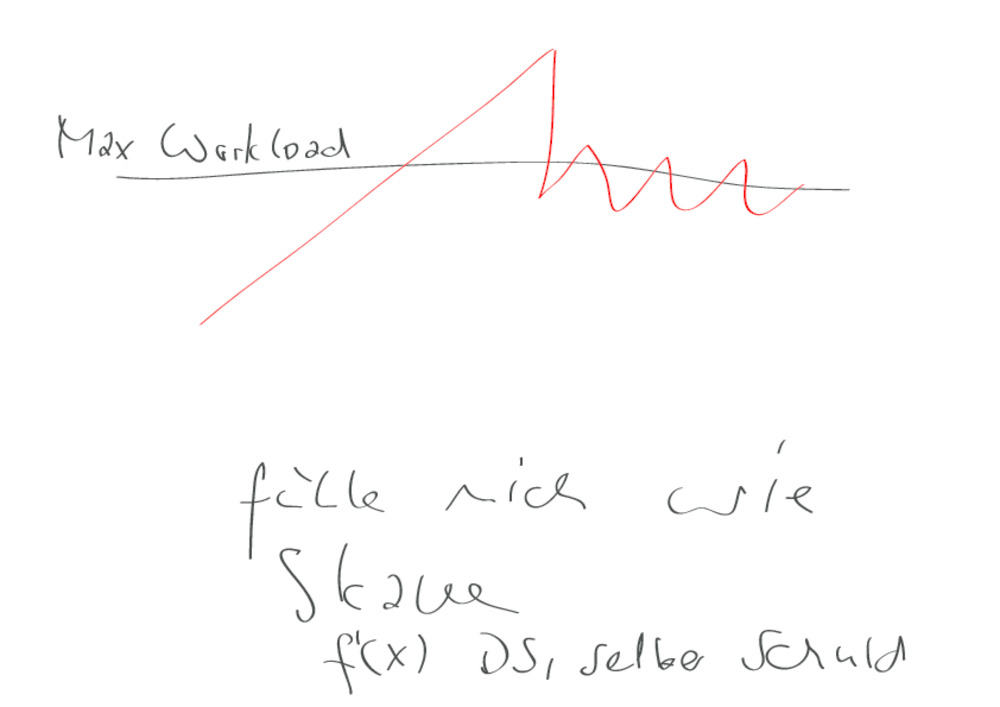 Max Workload
fülle mich wie
Skave
f'(x) DS, selber Schuld